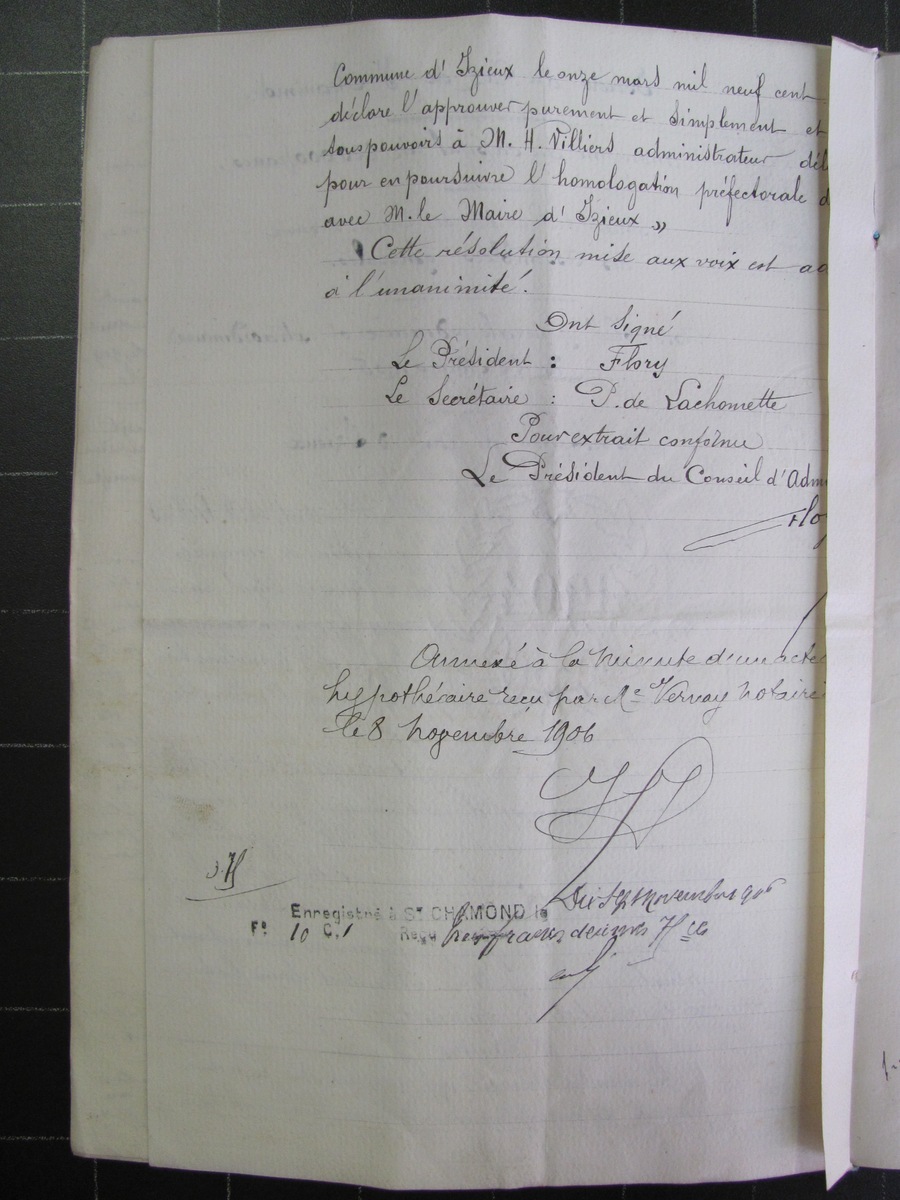 Commune d'Izieux le onze mars mil neuf cent
déclare l'approuver purement et simplement et
sous pouvoirs à M. H. Villiers administrateur dél
pour en poursuivre l'homologation préfectorale d
avec M. le Maire d'Izieux »
Cette résolution mise aux voix est ad
à l'unanimité.
Ont signé
Le Président : Flory
Le Secrétaire : P. de Lachomette
Pour extrait conforme
Le Président du Conseil d'Adm
Flo
Annexé à la minute d'un acte
hypothécaire reçu par Me Vernay notaire
le 8 novembre 1906
Enregistré à St CHAMOND le novembre 906
F° 10 C. 1 Reçu francs décimes